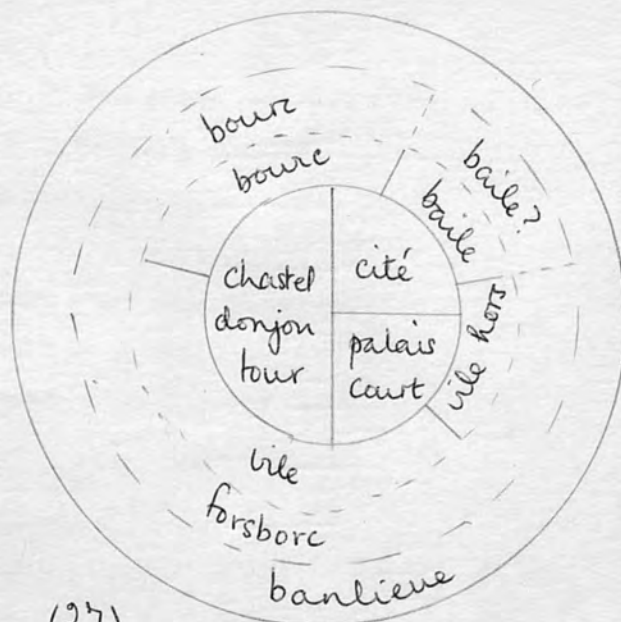 bourc
bourc
baile?
baile
chastel
donjon
tour
cité
palais
court
vile hors
vile
forsborc
banlieue
(27)